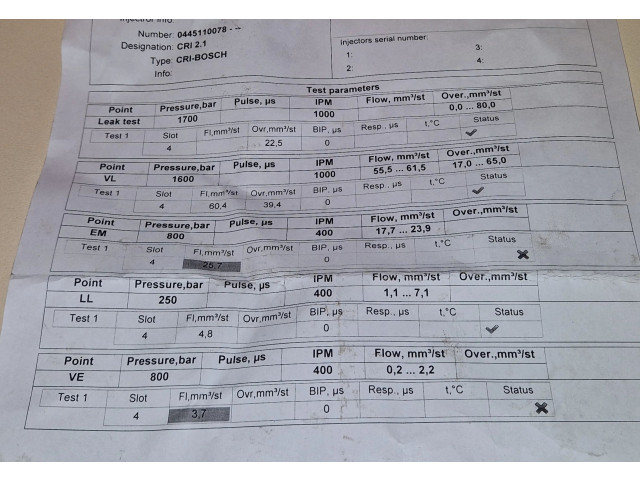 Injector info:
Number: 0445110078 - --
Designation: CRI 2.1
Type: CRI-BOSCH
Info:
Injectors serial number:
1: 3:
2: 4:
Test parameters
Point Pressure,bar Pulse, µs IPM Flow, mm³/st Over.,mm³/st
Leak test 1700 1000 0,0 ... 80,0
Test 1 Slot Fl,mm³/st Ovr,mm³/st BIP, µs Resp., µs t,°C Status
4 22,5 0
Point Pressure,bar Pulse, µs IPM Flow, mm³/st Over.,mm³/st
VL 1600 1000 55,5 ... 61,5 17,0 ... 65,0
Test 1 Slot Fl,mm³/st Ovr,mm³/st BIP, µs Resp., µs t,°C Status
4 60,4 39,4 0
Point Pressure,bar Pulse, µs IPM Flow, mm³/st Over.,mm³/st
EM 800 400 17,7 ... 23,9
Test 1 Slot Fl,mm³/st Ovr,mm³/st BIP, µs Resp., µs t,°C Status
4 25,7 0
Point Pressure,bar Pulse, µs IPM Flow, mm³/st Over.,mm³/st
LL 250 400 1,1 ... 7,1
Test 1 Slot Fl,mm³/st Ovr,mm³/st BIP, µs Resp., µs t,°C Status
4 4,8 0
Point Pressure,bar Pulse, µs IPM Flow, mm³/st Over.,mm³/st
VE 800 400 0,2 ... 2,2
Test 1 Slot Fl,mm³/st Ovr,mm³/st BIP, µs Resp., µs t,°C Status
4 3,7 0